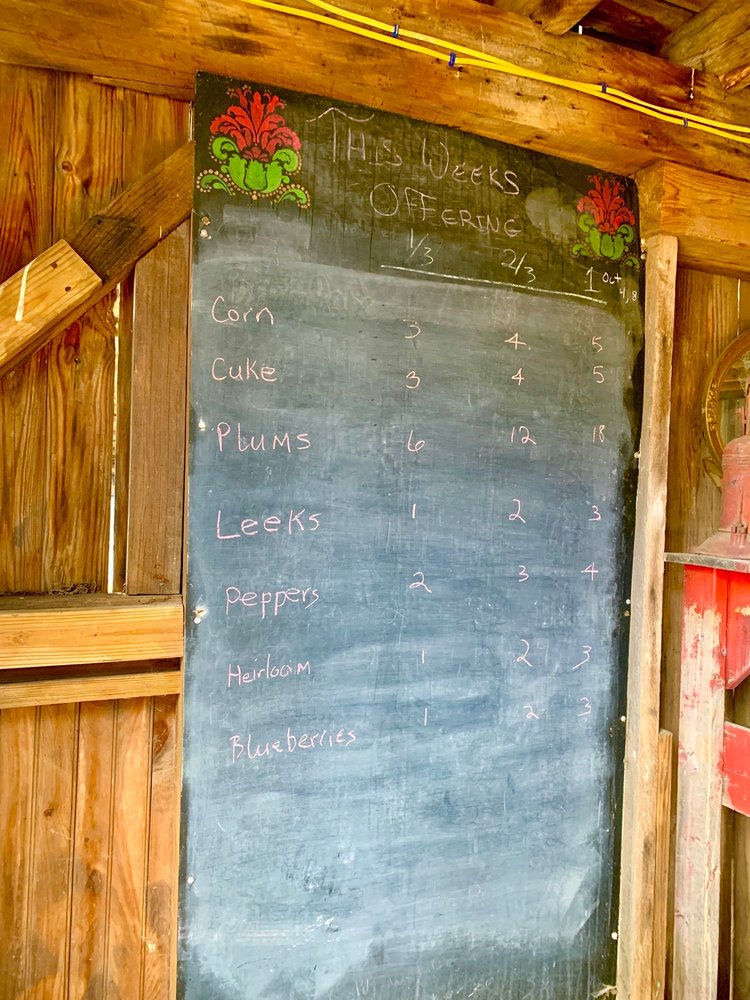 THIS WEEKS
OFFERING
1/3 2/3 1 Oct 4,8
Corn 3 4 5
Cuke 3 4 5
PLUMS 6 12 18
Leeks 1 2 3
Peppers 2 3 4
Heirloom 1 2 3
Blueberries 1 2 3